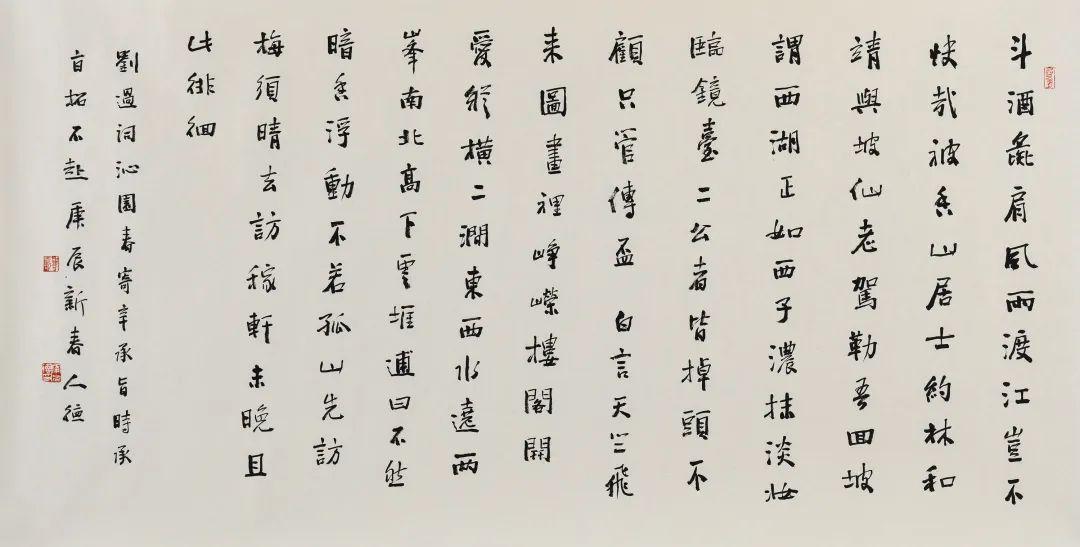 斗酒彘肩風雨渡江豈不
快哉被香山居士約林和
靖與坡仙老駕勒吾回坡
謂西湖正如西子濃抹淡妝
臨鏡臺二公者皆掉頭不
顧只管傳盃 白言天竺飛
来圖畫裡崢嶸樓閣開
愛縱橫二澗東西水遶兩
峯南北高下雲堆逋曰不然
暗香浮動不若孤山先訪
梅須晴去訪稼軒未晚且
此徘徊
劉過詞沁園春寄辛承旨時承
旨招不赴庚辰新春人